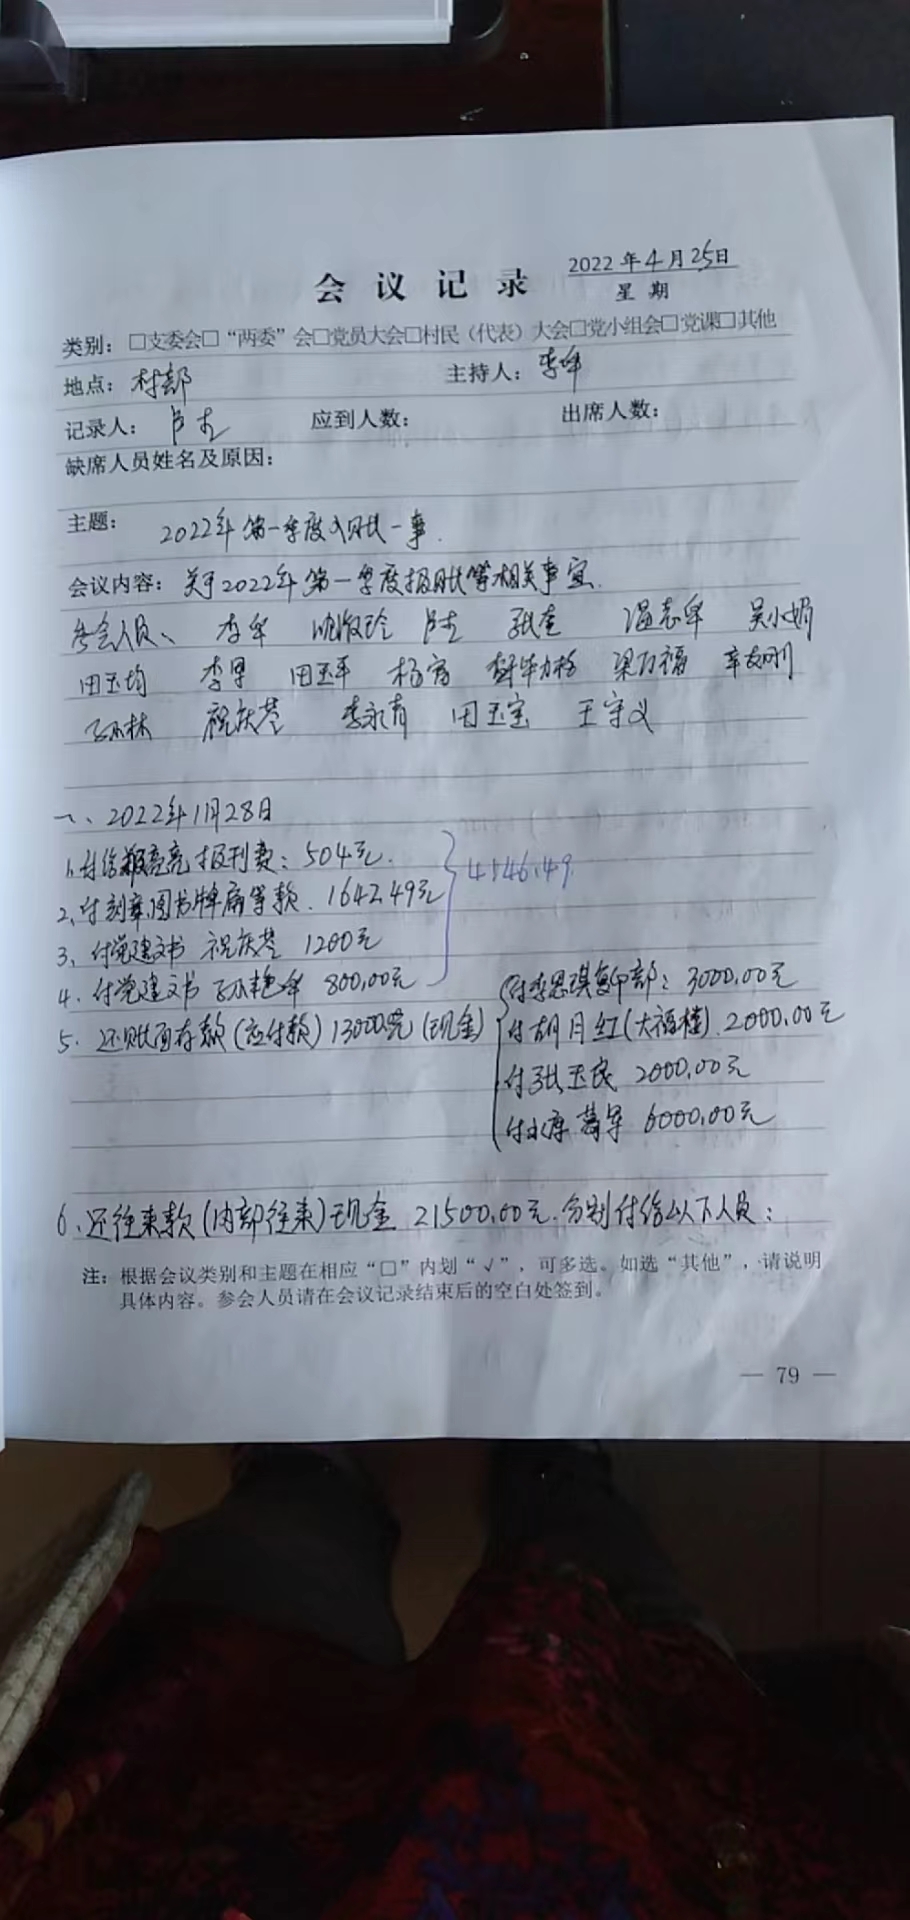 会议记录
2022年4月25日
星期
类别：□支委会□“两委”会□党员大会□村民（代表）大会□党小组会□党课□其他
地点：村部 主持人：李军
记录人：卢士 应到人数： 出席人数：
缺席人员姓名及原因：
主题：2022年第一季度入账一事.
会议内容：关于2022年第一季度报账等相关事宜.
参会人员、李军 卢士 温志军 吴小娟
田玉均 李军 田玉平 杨富 梁万福 辛友刚
孙林 祝庆芸 李永青 田玉宝 王守义
一、2022年1月28日
1.付给 亮亮报刊费：504元.
2、付刻章图书牌匾等款.1642.49元
3、付党建文书 祝庆芸 1200元
4.付党建文书 孙艳华 800.00元
4146.49
5.还账面存款(应付款)13000元(现金)
付李思琪复印部：3000.00元
付胡月红(大福楼).2000.00元
付张玉民 2000.00元
付水库 葛军 6000.00元
6、还往来款(内部往来)现金 21500.00元.分别付给以下人员：
注：根据会议类别和主题在相应“□”内划“√”，可多选。如选“其他”，请说明
具体内容。参会人员请在会议记录结束后的空白处签到。
— 79 —